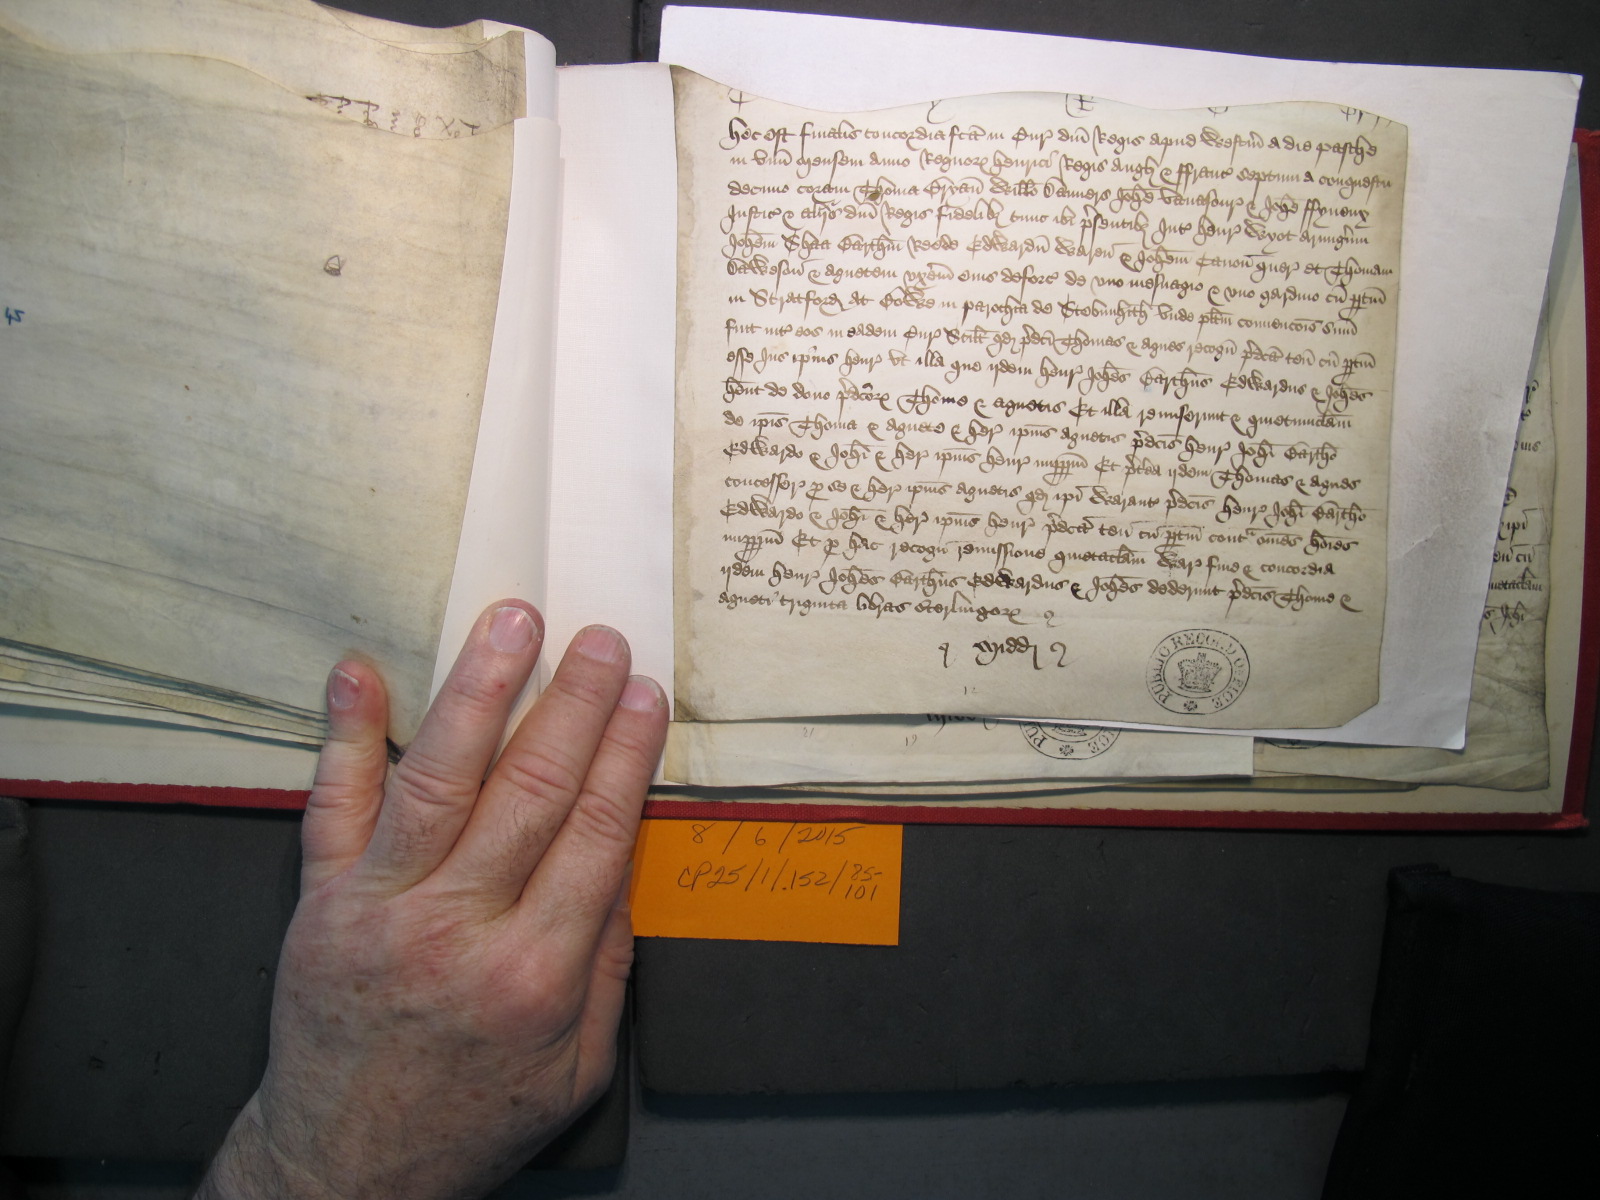 hec est finalis concordia fcta in Cur dni Regis apud Westm a die pasche
in unu mensem anno Regnor henrici Regis Angl & ffranc septimi a conquestu
decimo coram Thoma Bryan Willo Danvers Johe Vavasour & Johe ffyneux
Justic & alijs dni Regis fidelibz tunc ibi psentibz Int henr Wyot armigm
Johem Shaa Barthm Rede Edwardu & Johem quer et Thomam
Daweson & agnetem uxem eius deforc de uno mesuagio & uno gardino cu ptin
in Stratford at Bowe in parochia de Stebunhith Unde plitm convencois sum
fuit int eos in eadem Cur Scilt qd pdci Thomas & agnes recogn pdca ten cu ptin
esse Jus ipius henr ut illa que ijdem henr Johes Barthus Edwardus & Johes
hent de dono pdcor Thome & agnetis Et illa remiserunt & quietumclam
de ipis Thoma & agnete & her ipius agnetis pdcis henr Johi Bartho
Edwardo & Johi & her ipius henr imppm Et pterea ijdem Thomas & agnes
concesser p se & her ipius agnetis qd ipi Warant pdcis henr Johi Bartho
Edwardo & Johi & her ipius henr pdca ten cu ptin cont omes hoies
imppm Et p hac recogn remissione quietaclam War fine & concordia
ijdem henr Johes Barthus Edwardus & Johes dederunt pdcis Thome &
agneti triginta libras sterlingor
Midd
PUBLIC RECORD OFFICE
12
21
19
45
8 / 6 / 2015
CP25/1/152/85-
101